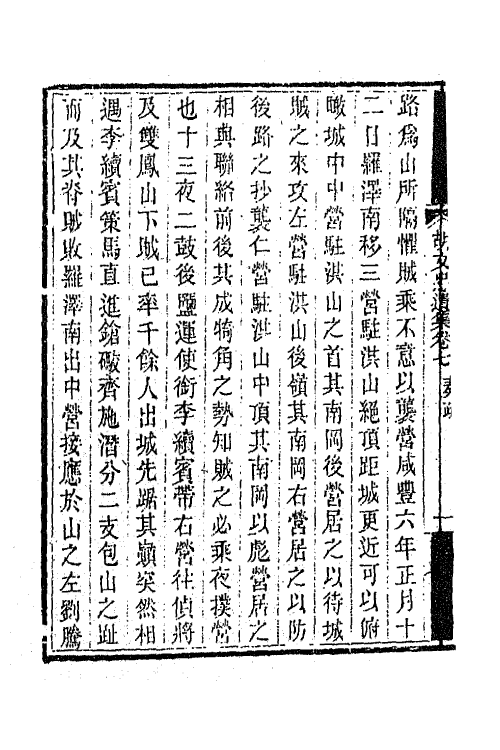 胡文忠遺集卷七 奏疏
路為山所隔懼賊乘不意以襲營咸豐六年正月十
二日羅澤南移三營駐洪山絕頂距城更近可以俯
瞰城中中營駐洪山之首其南岡後營居之以待城
賊之來攻左營駐洪山後嶺其南岡右營居之以防
後路之抄襲仁營駐洪山中頂其南岡以彪營居之
相與聯絡前後其成犄角之勢知賊之必乘夜撲營
也十三夜二鼓後鹽運使銜李續賓帶右營往偵將
及雙鳳山下賊已率千餘人出城先踞其巔突然相
遇李續賓策馬直進鎗礮齊施潛分二支包山之趾
而及其脊賊敗羅澤南出中營接應於山之左劉騰